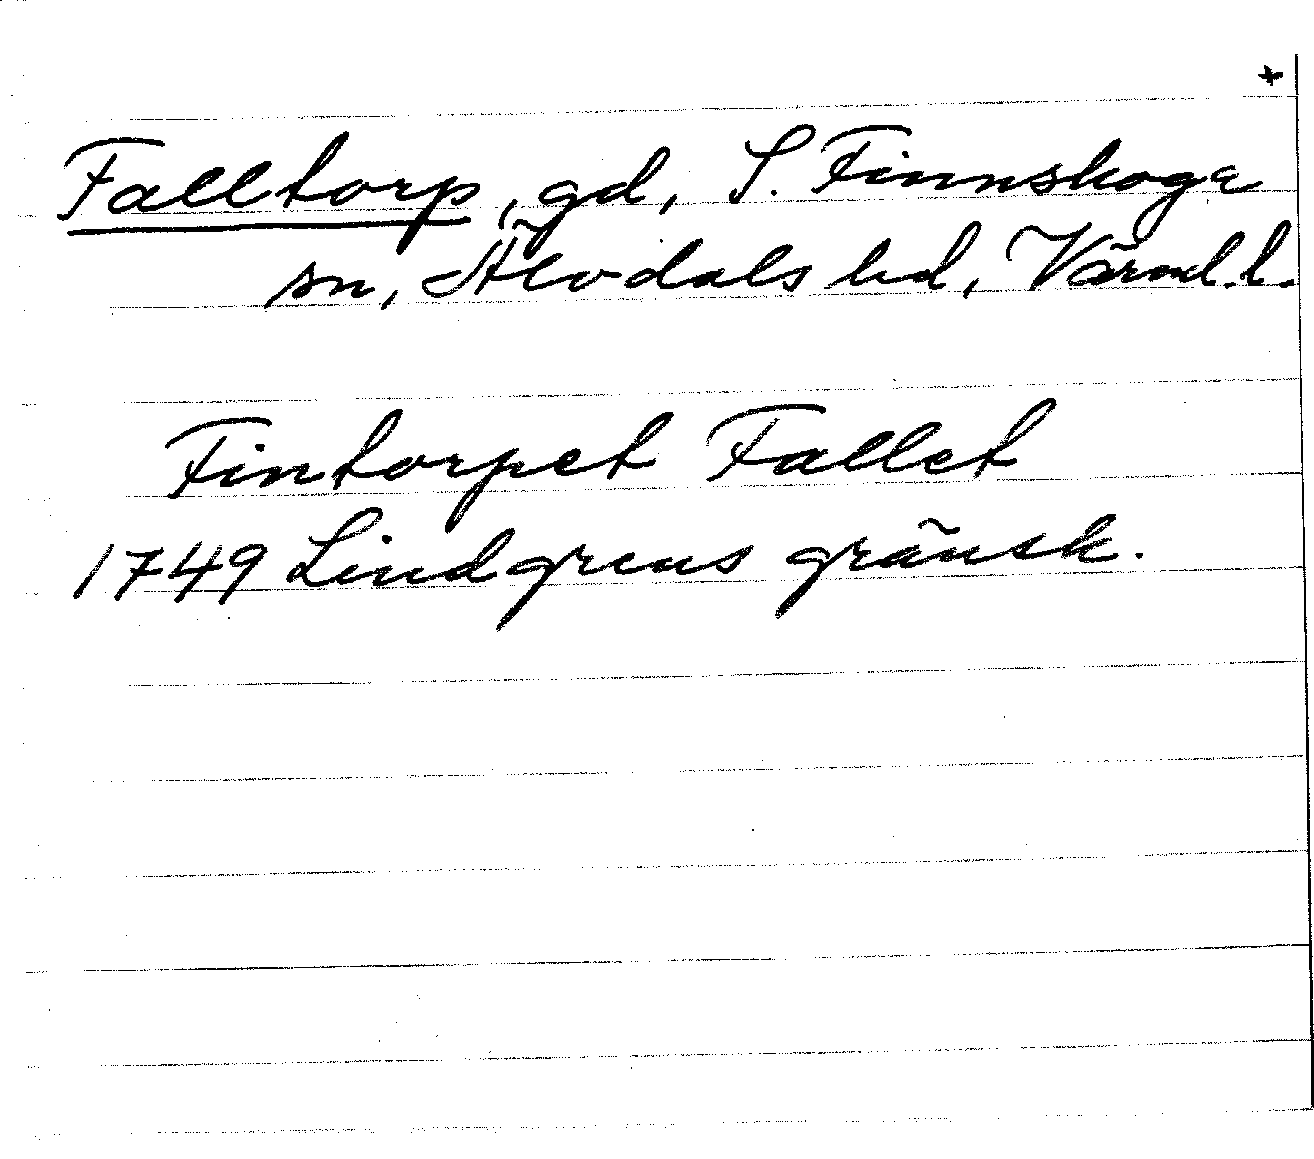 +
Falltorp, gd, S. Finnskoga
sn, Älvdals hd, Värml. l.
Fintorpet Fallet
1749 Lindgrens gränsk.